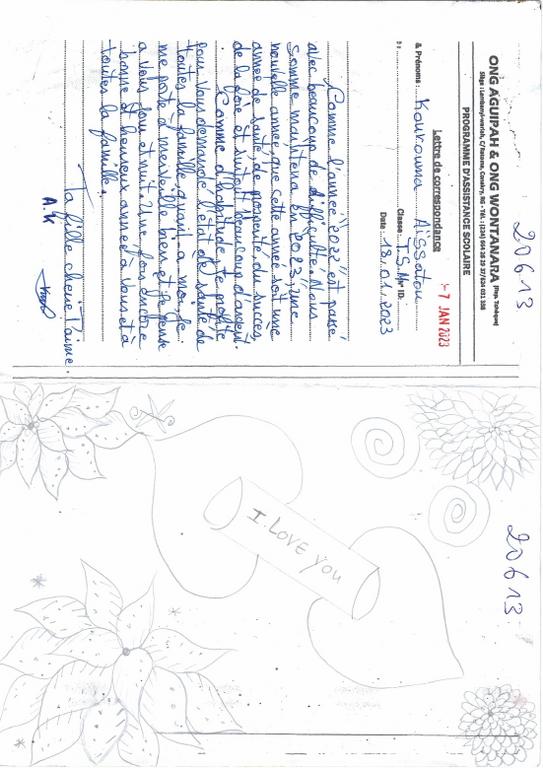 20613
ONG AGUIPAH & ONG WONTANARA
PROGRAMME D'ASSISTANCE SCOLAIRE
Lettre de correspondance
- 7 JAN 2023
& Prénoms : Kourouma Aïssatou
Classe : T.S.M N° ID:
Date : 18/01/2023
Comme l'année "2022" est passé
avec beaucoup de difficulté. Nous
somme maintena en 2023, une
nouvelle année, que cette année soit une
année de santé, de prosperité, du succès,
de la joie et surtout beaucoup d'ardeur
Comme d'habitude, je profite
pour vous demandé l'état de santé de
toutes la famille, quant a moi, je
me porte à merveille bien et je pense
a vous jour et nuit. Une fois encore
bonne et heureux année à vous et à
toutes la famille.
Ta fille cherie t'aime.
A.K
20613
I LOVE YOU